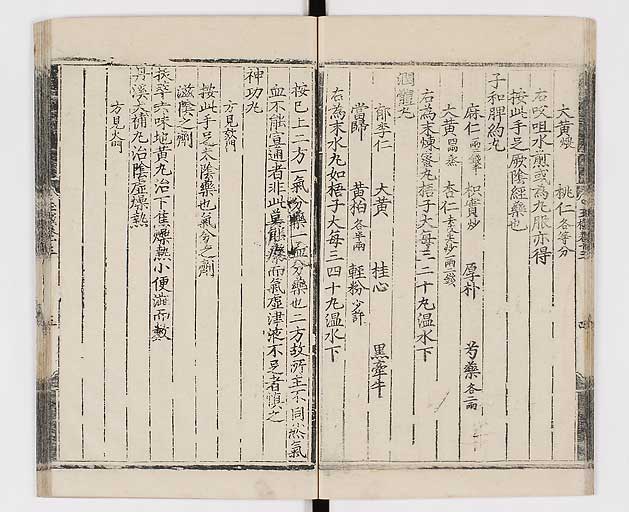 大黄煨 桃仁各等分
右㕮咀水煎或為丸服亦得
按此手足厥陰經藥也
子和脾約丸
麻仁 枳實炒 厚朴 芍藥各二兩
大黄 杏仁
右為末煉蜜丸梧子大每三二十丸温水下
潤體丸
郁李仁 大黄 桂心 黒牽牛
當歸 黄柏各半兩 輕粉少許
右為末水丸如梧子大每三四十丸温水下
按已上二方一氣分藥一血分藥也二方故所主不同然氣
血不能宣通者非此莫能療而氣虛津液不足者慎之
神功丸
方見欬門
按此手足太陰藥也氣分之劑
滋陰之劑
拔萃六味地黄丸治下焦燥熱小便澁而數
丹溪大補丸治陰虛燥熱
方見火門